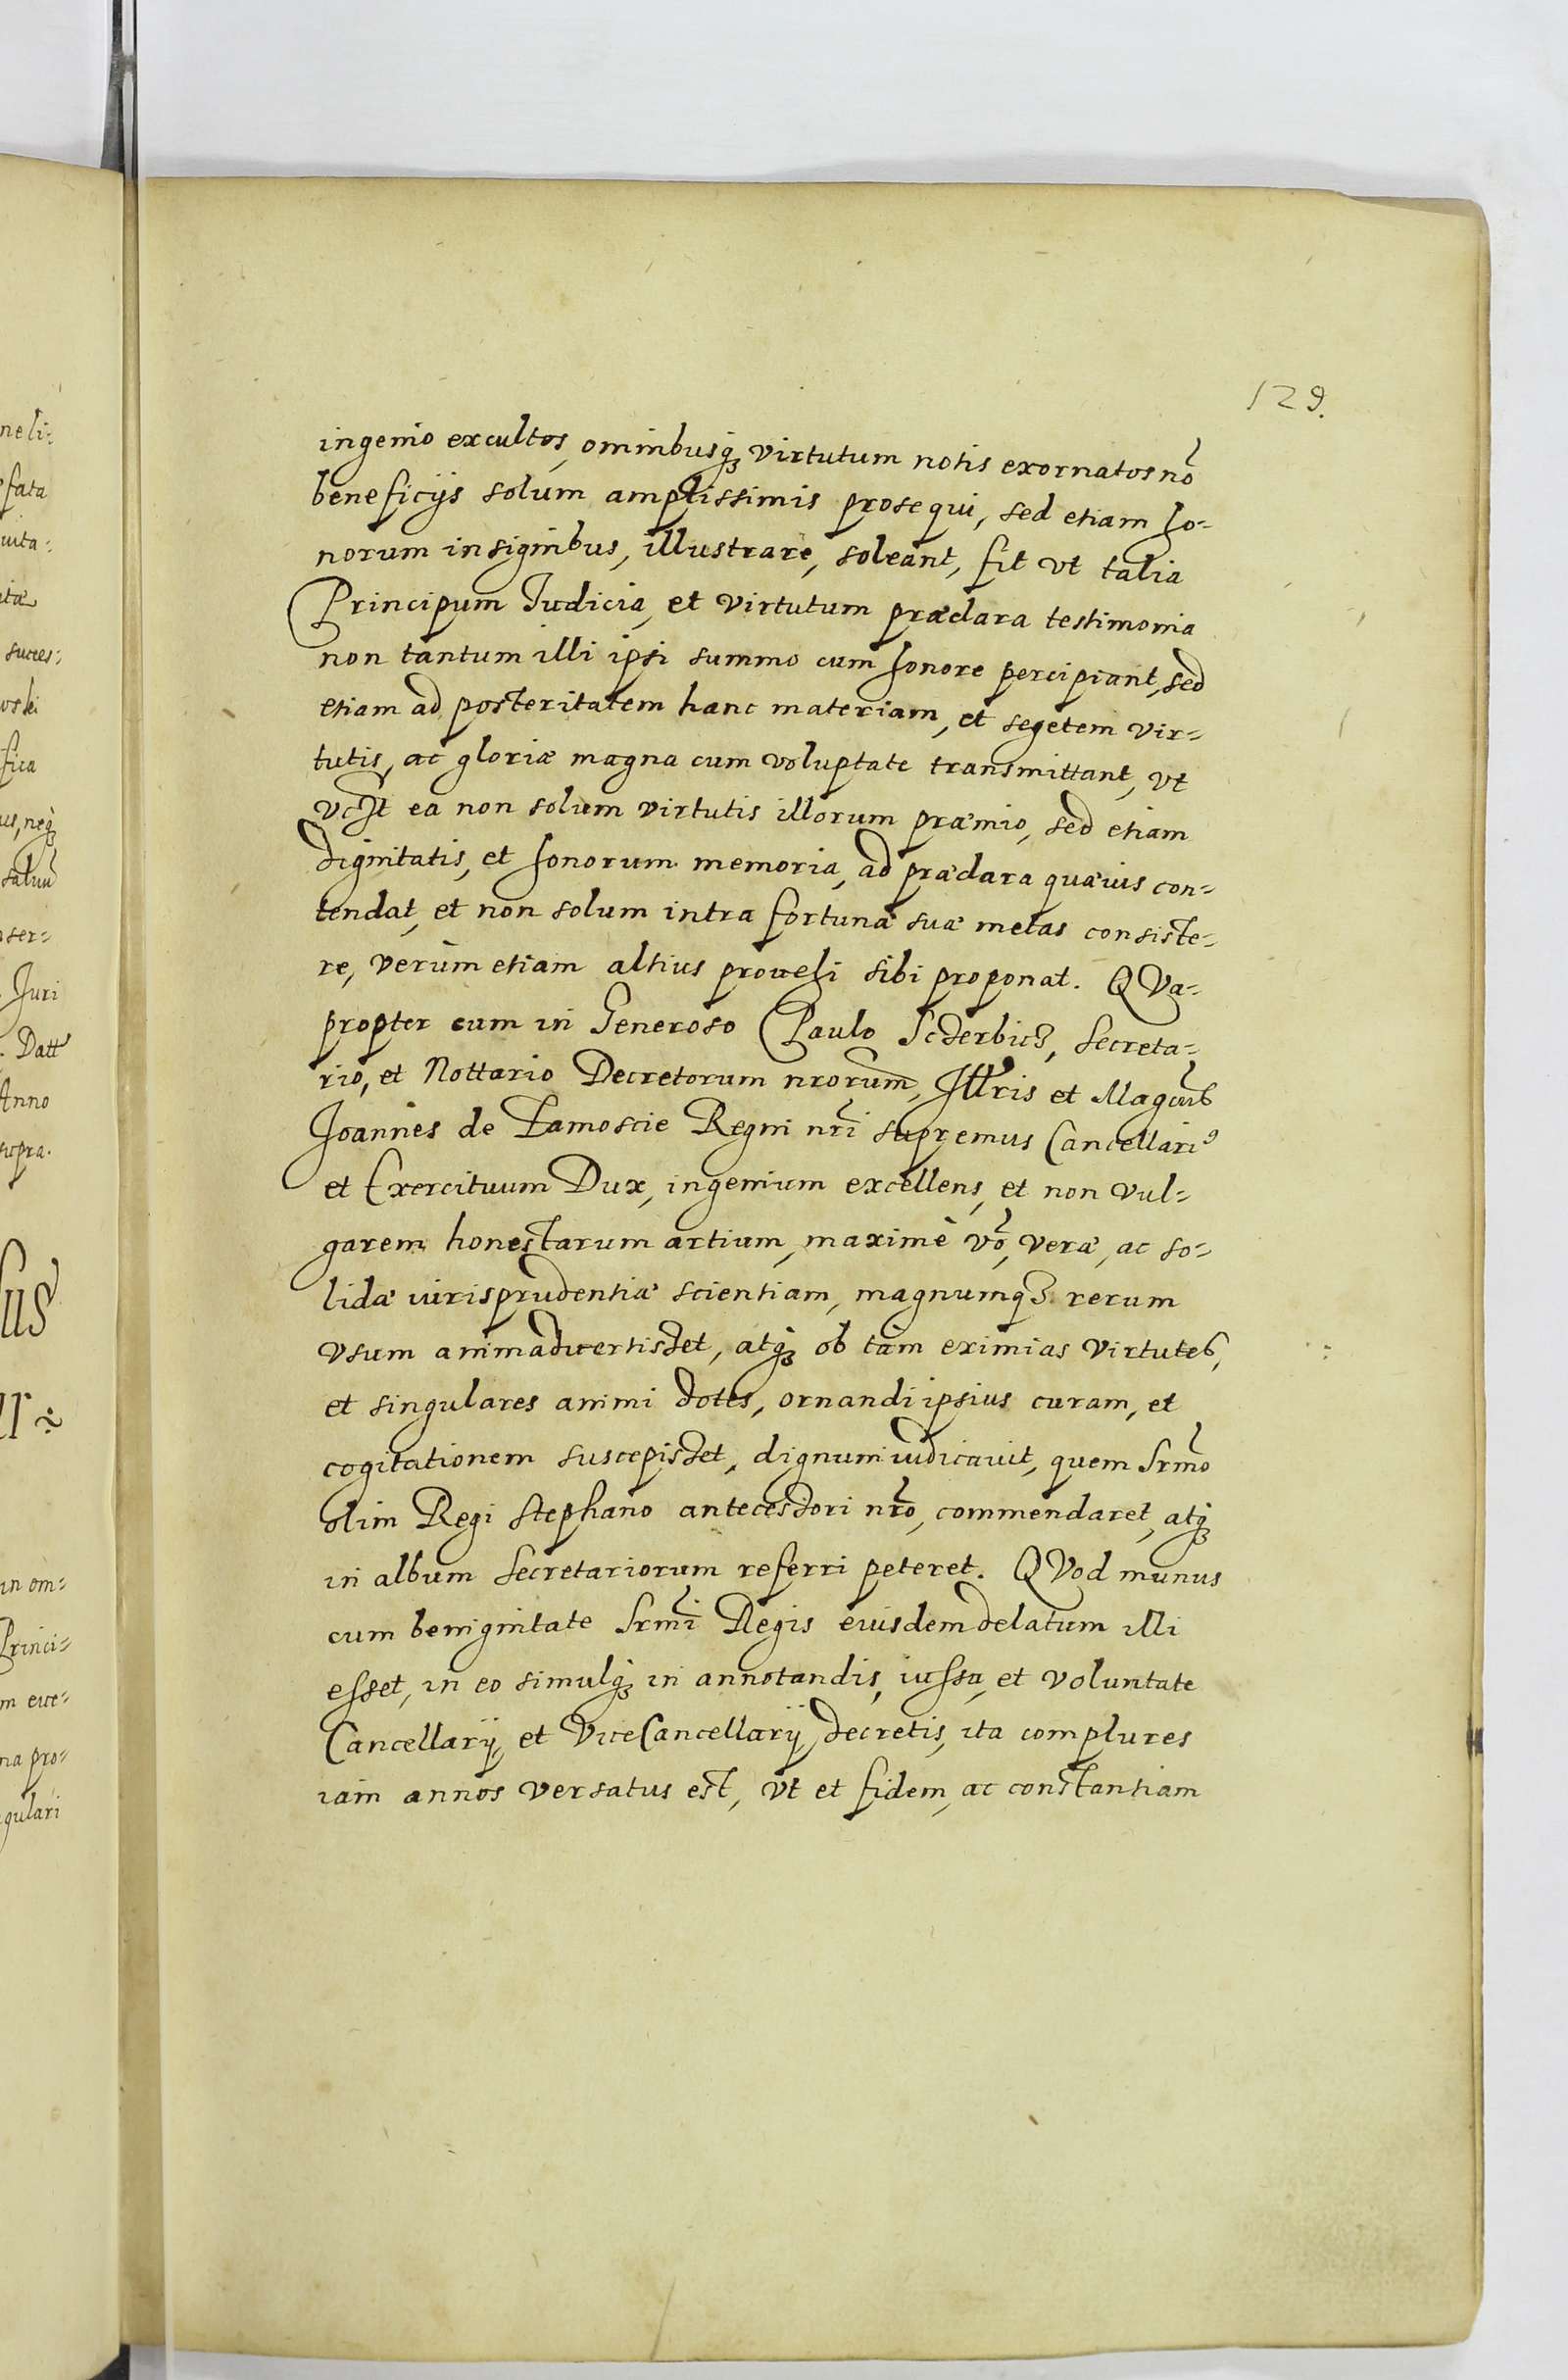 129.
ingenio excultos, omnibusq3 virtutum notis exornatos nō
beneficijs solum amplissimis prosequi, sed etiam ho=
norum insignibus, illustrare, soleant, fit vt talia
Principum Iudicia, et virtutum præclara testimonia
non tantum illi ipsi summo cum honore percipiant, sed
etiam ad posteritatem hanc materiam, et segetem vir=
tutis, ac gloriæ magna cum voluptate transmittant, vt
ea non solum virtutis illorum præmio, sed etiam
dignitatis, et honorum memoria, ad præclara quæuis con=
tendat, et non solum intra fortunæ suæ metas consiste=
re, verùm etiam altius prouehi sibi proponat. QVa=
propter cum in Generoso Paulo Sczerbicz, Secreta=
rio, et Nottario Decretorum nrorum, Illris et Magcus
Joannes de Zamoscie Regni nrī supremus Cancellari9
et Exercituum Dux, ingenium excellens, et non vul=
garem honestarum artium, maximè vō, veræ, ac so=
lidæ iurisprudentiæ scientiam, magnumq3 rerum
vsum animaduertisset, atq3 ob tam eximias virtutes,
et singulares animi dotes, ornandi ipsius curam, et
cogitationem suscepisset, dignum iudicauit, quem Srmō
olim Regi Stephano antecessori nrō, commendaret, atq3
in album Secretariorum referri peteret. QVod munus
cum benignitate Srmī Regis eiusdem delatum illi
esset, in eo simulq3 in annotandis, iussu, et voluntate
Cancellarij, et ViceCancellarij decretis, ita complures
iam annos versatus est, vt et fidem, ac constantiam
neli=
fata
uita=
succes=
fica
neq3
ser=
Juri
Datt
Anno
supra.
in om=
Princi=
na pro=
gulari